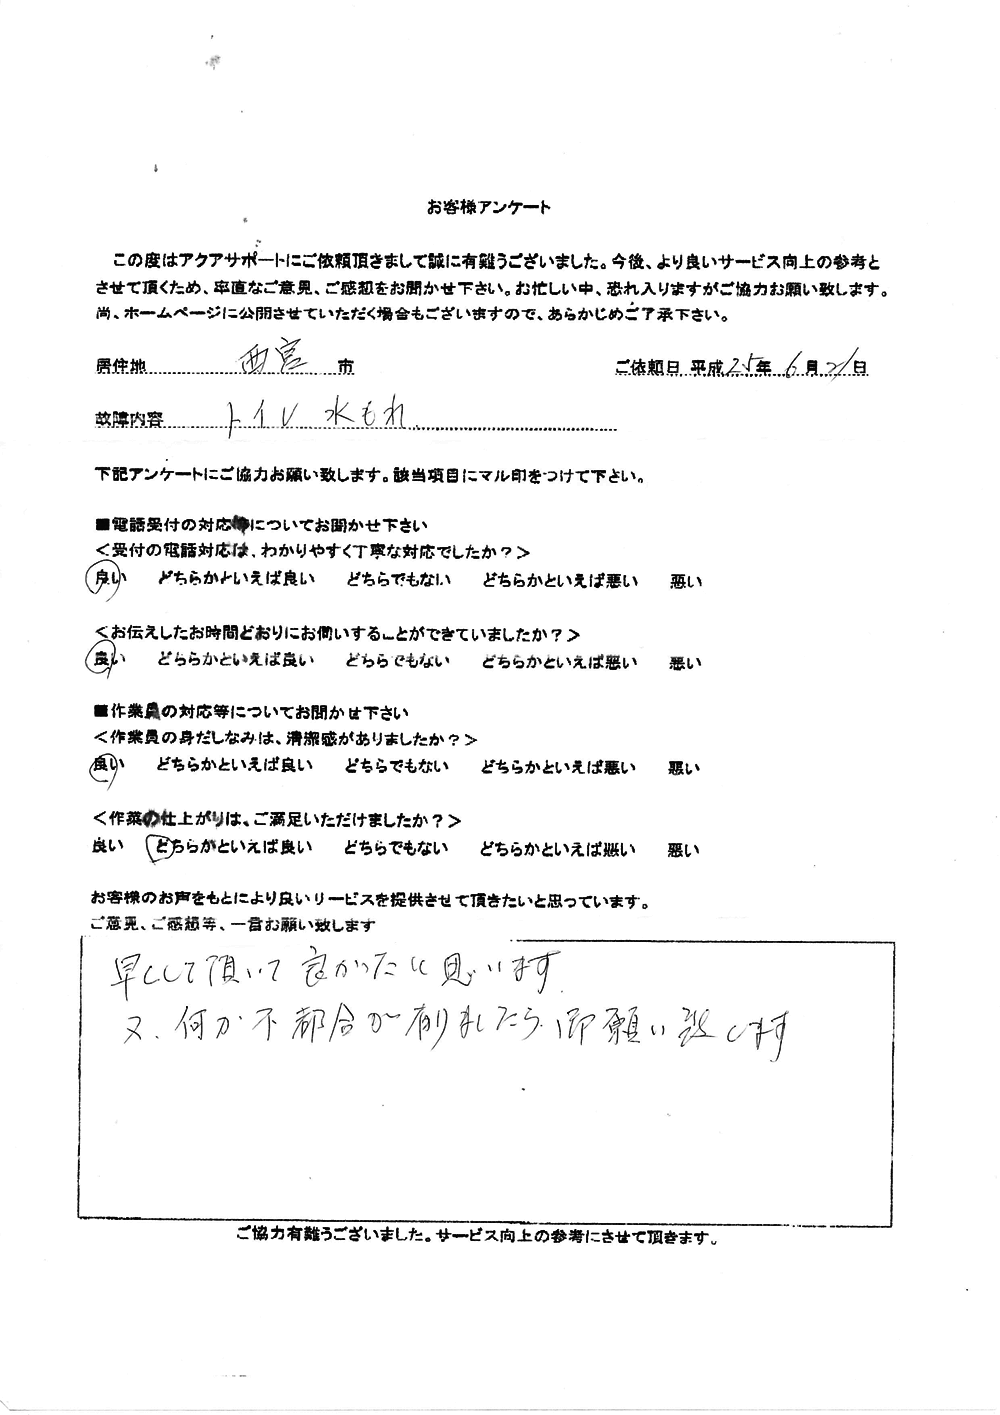 お客様アンケート
この度はアクアサポートにご依頼頂きまして誠に有難うございました。今後、より良いサービス向上の参考と
させて頂くため、率直なご意見、ご感想をお聞かせ下さい。お忙しい中、恐れ入りますがご協力お願い致します。
尚、ホームページに公開させていただく場合もございますので、あらかじめご了承下さい。
居住地 西宮 市 ご依頼日 平成25年 6月21日
故障内容 トイレ 水もれ
下記アンケートにご協力お願い致します。該当項目にマル印をつけて下さい。
■電話受付の対応等についてお聞かせ下さい
<受付の電話対応は、わかりやすく丁寧な対応でしたか?>
良い どちらかといえば良い どちらでもない どちらかといえば悪い 悪い
<お伝えしたお時間どおりにお伺いすることができていましたか?>
良い どちらかといえば良い どちらでもない どちらかといえば悪い 悪い
■作業員の対応等についてお聞かせ下さい
<作業員の身だしなみは、清潔感がありましたか?>
良い どちらかといえば良い どちらでもない どちらかといえば悪い 悪い
<作業の仕上がりは、ご満足いただけましたか?>
良い どちらかといえば良い どちらでもない どちらかといえば悪い 悪い
お客様のお声をもとにより良いサービスを提供させて頂きたいと思っています。
ご意見、ご感想等、一言お願い致します
早くして頂いて良かったと思います
又、何か不都合が有りましたら御願い致します
ご協力有難うございました。サービス向上の参考にさせて頂きます。